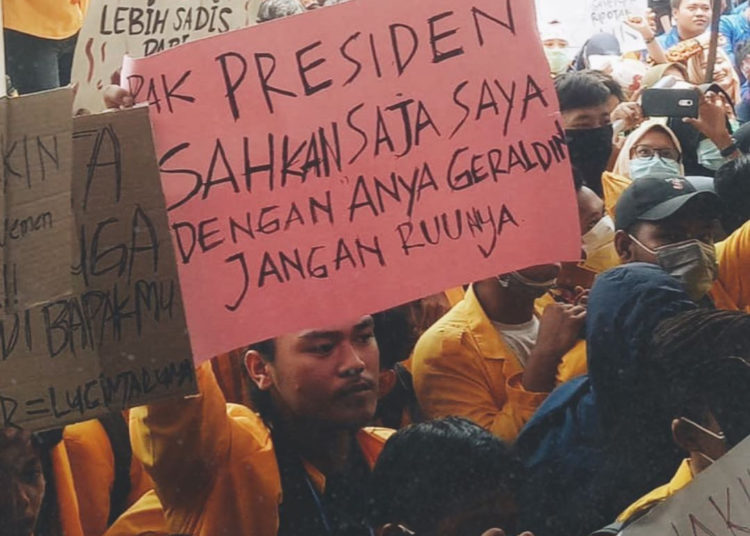 LEBIH SADIS
DARI
PAK PRESIDEN
SAHKAN SAJA SAYA
DENGAN "ANYA GERALDIN
JANGAN RUUNYA
KIN
TA
GA
DI BAPAKMU
R = LUCINTA LUNA